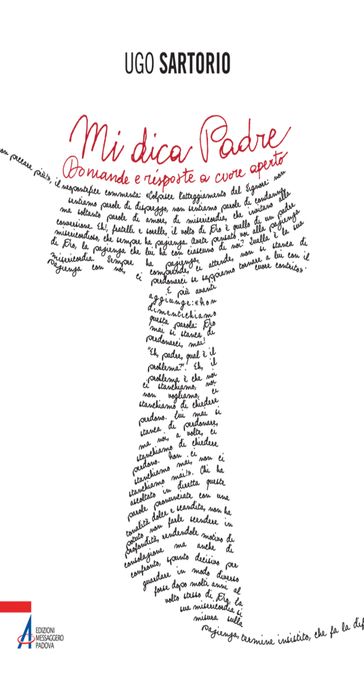 UGO SARTORIO
Mi dica Padre
Domande e risposte a cuore aperto
piccare più», il neopontefice commenta: «Colpisce l'atteggiamento del Signore: non
sentiamo parole di disprezzo, non sentiamo parole di condanna,
ma soltanto parole di amore, di misericordia, che invitano alla
conversione. Eh!, fratelli e sorelle, il volto di Dio è quello di un padre
misericordioso, che sempre ha pazienza. Avete pensato voi alla pazienza
di Dio, la pazienza che lui ha con ciascuno di noi? Quella è la sua
misericordia. Sempre ha pazienza,
pazienza con noi, ci comprende, ci attende, non si stanca di
perdonarci se sappiamo tornare a lui con il
cuore contrito».
E più avanti
aggiunge: «Non
dimentichiamo
questa parola: Dio
mai si stanca di
perdonarci, mai!
"Eh, padre, qual è il
problema?". Eh, il
problema è che noi
ci stanchiamo, noi
non vogliamo, ci
stanchiamo di chiedere
perdono. Lui mai si
stanca di perdonare,
ma noi, a volte, ci
stanchiamo di chiedere
perdono. Non ci
stanchiamo mai, non ci
stanchiamo mai!». Chi ha
ascoltato in diretta queste
parole pronunciate con una
tonalità dolce e scandita, non ha
potuto non farle scendere in
profondità, rendendole motivo di
consolazione ma anche di
confronto, spunto decisivo per
guardare in modo diverso
forse dopo molti anni al
volto stesso di Dio. La
sua misericordia si
misura sulla
pazienza, termine insistito, che fa la dif
EDIZIONI
MESSAGGERO
PADOVA